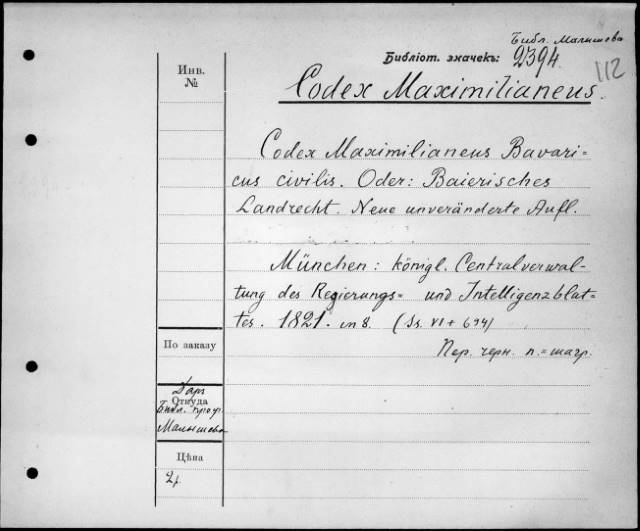 Библ. Малышева
Библіот. значекъ: 2394.
112
Инв.
№
Codex Maximilianeus.
Codex Maximilianeus Bavari=
cus civilis. Oder: Baierisches
Landrecht. Neue unveränderte Aufl.
München: königl. Centralverwal-
tung des Regierungs= und Intelligenzblat-
tes. 1821. in 8. (Ss. VI + 694)
Пер. черн. п.=шагр.
По заказу
Даръ
Откуда
Библ. проф.
Малышева
Цѣна